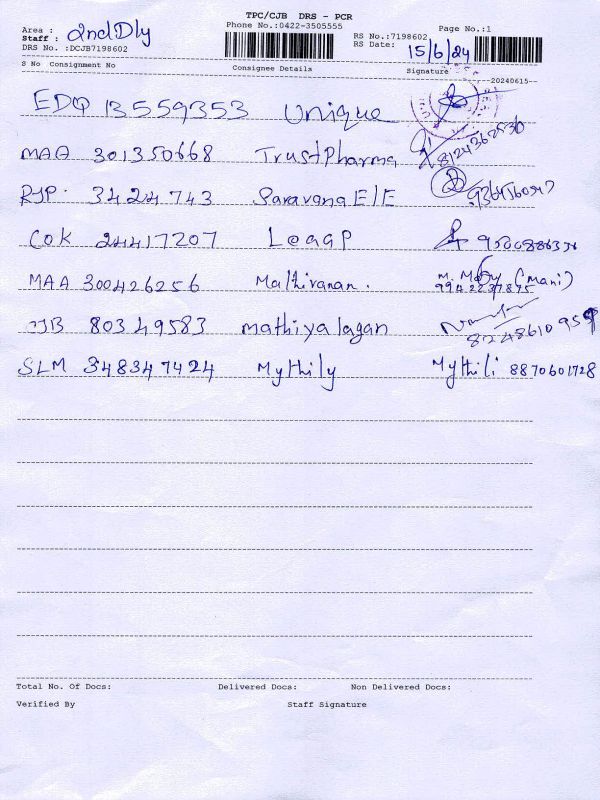 TPC/CJB DRS - PCR
Phone No.:0422-3505555
Area :
Staff : 2ndDly
DRS No. :DCJB7198602
RS No.:7198602
RS Date: 15/6/24
Page No.:1
S No Consignment No Consignee Details Signature
--20240615--
EDQ 13559353 Unique
MAA 301350668 TrustPharma 8124362536
RJP. 3424743 Saravana E/E
COK 24417207 Loaap
MAA 300426256 Mathivanan. (Mani) 9942237845
80349583 mathiyalagan
SLM 348347424 Mythily Mythili 8870601728
Total No. Of Docs: Delivered Docs: Non Delivered Docs:
Verified By Staff Signature